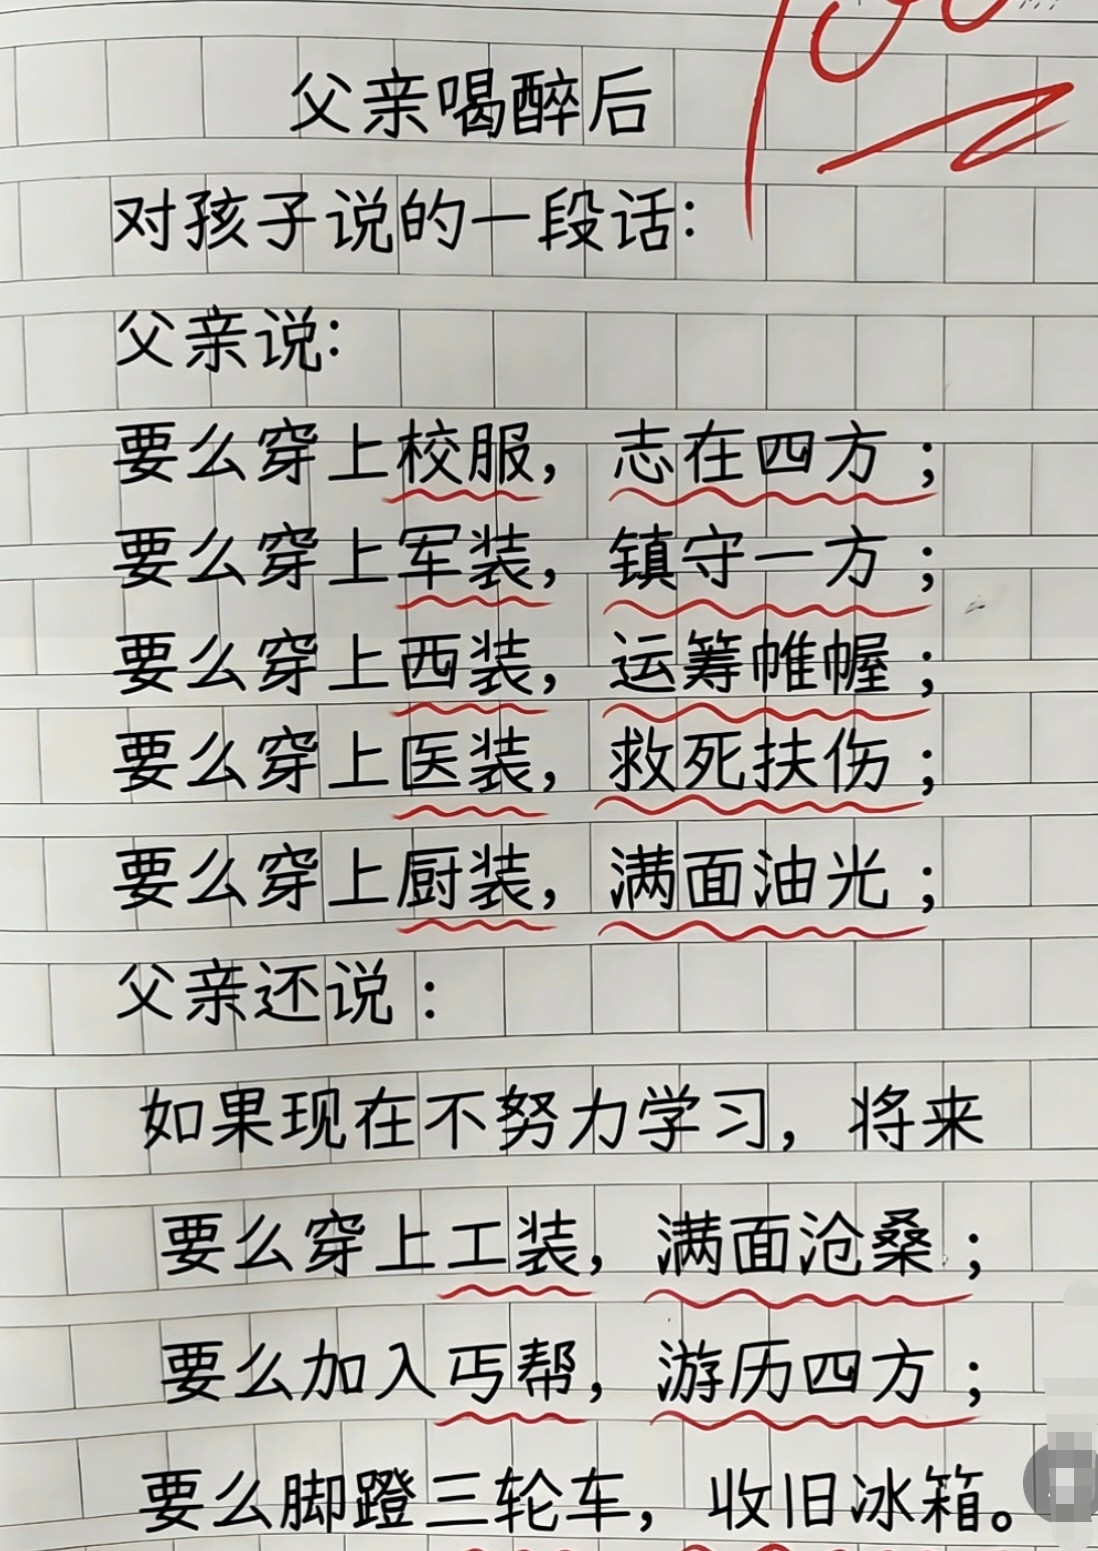 100
父亲喝醉后
对孩子说的一段话:
父亲说:
要么穿上校服，志在四方；
要么穿上军装，镇守一方；
要么穿上西装，运筹帷幄；
要么穿上医装，救死扶伤；
要么穿上厨装，满面油光；
父亲还说：
如果现在不努力学习，将来
要么穿上工装，满面沧桑；
要么加入丐帮，游历四方；
要么脚蹬三轮车，收旧冰箱。